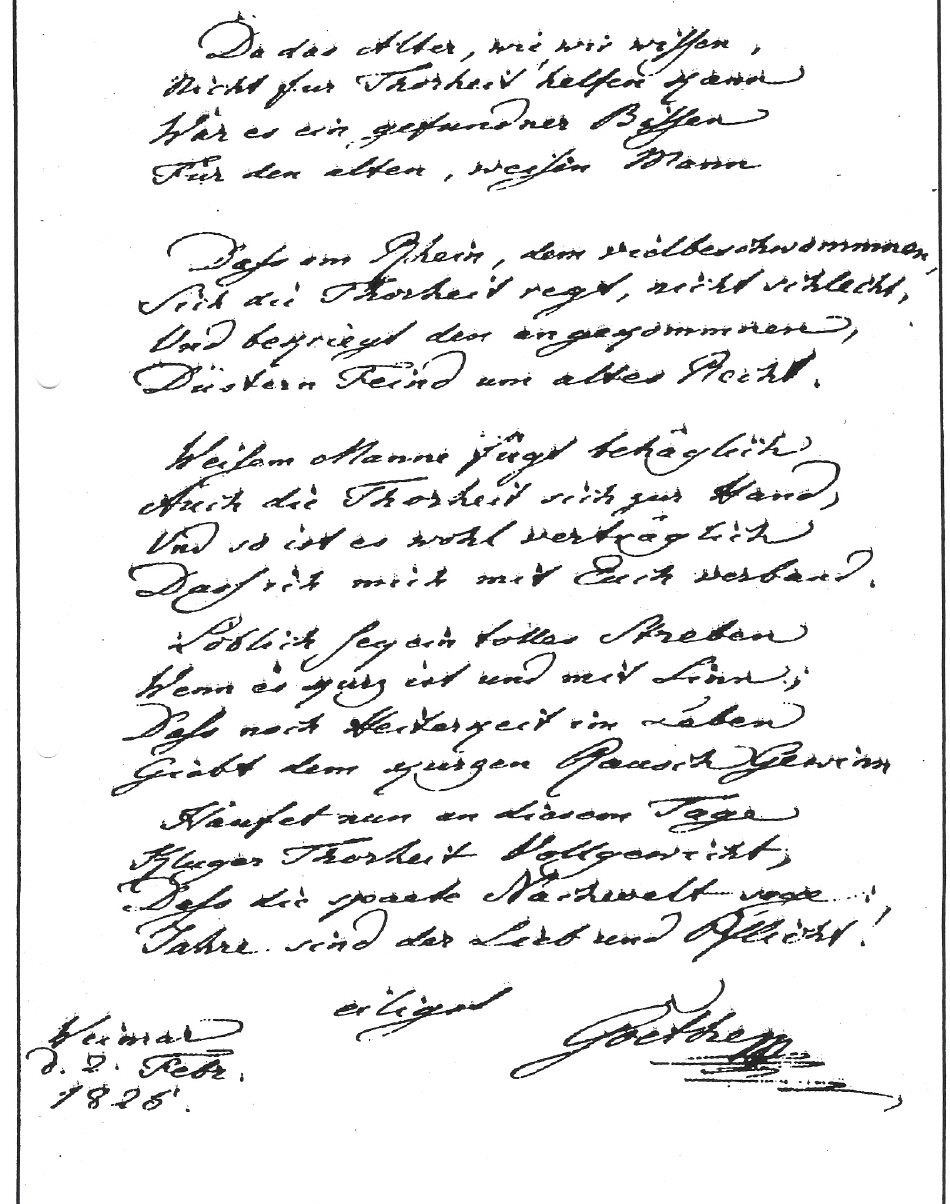 Da das Alter, wie wir wissen,
Nicht fur Thorheit helfen kann
Wär es ein gefundner Bissen
Für den alten, weisen Mann
Dass am Rhein, dem vielbeschwommnen,
Sich die Thorheit regt, nicht schlecht,
Und bekriegt den angekommnen,
Düstern Feind um altes Recht.
Weisem Manne fügt behäglich
Auch die Thorheit sich zur Hand,
Und so ist es wohl verträglich
Dass ich mich mit Euch verband.
Löblich sey ein tolles Streben
Wenn es kurz ist und mit Sinn;
Dass noch Heiterkeit im Leben
Giebt dem kurzen Rausch Gewinn
Häufet nun an diesem Tage
Kluger Thorheit Vollgewicht,
Dass die spaete Nachwelt sage:
Jahre sind der Lieb und Pflicht!
eiligst
Goethe
Weimar
d. 2. Febr.
1825.